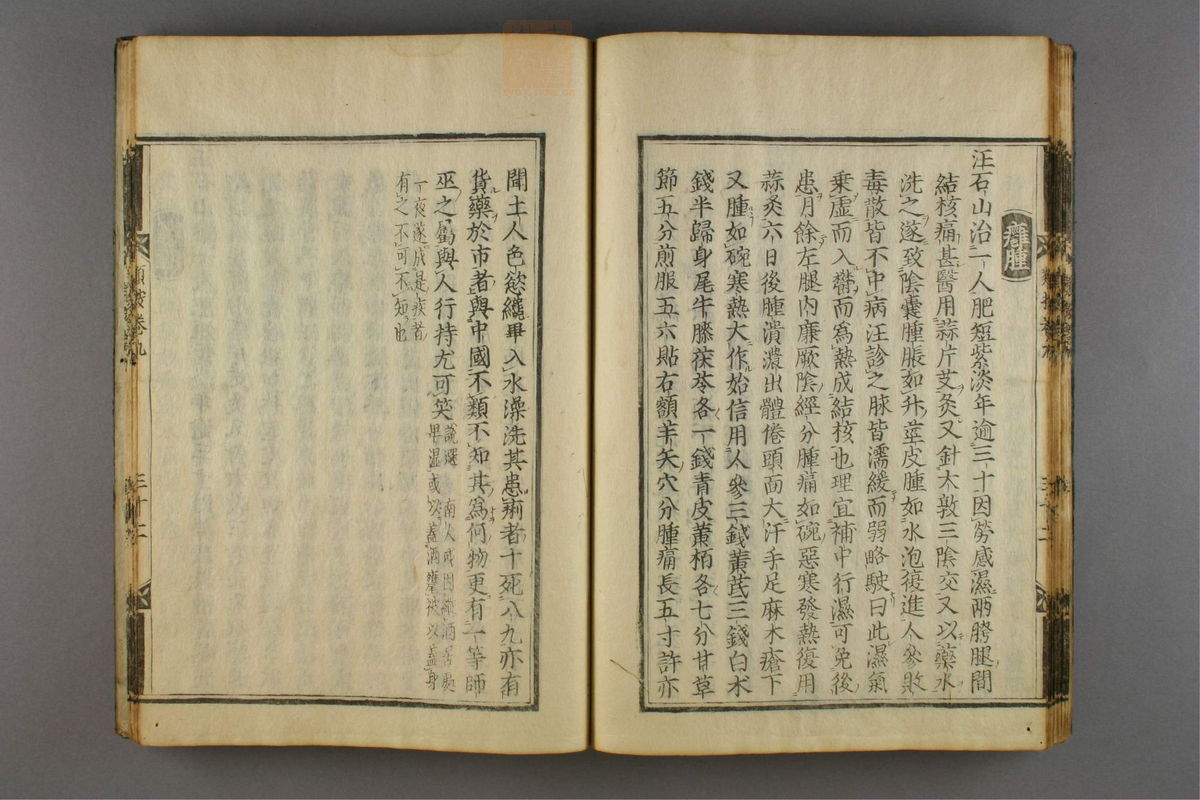 癰腫
汪石山治一人肥短紫淡年逾三十因勞感濕兩胯腿間
結核痛甚醫用蒜片艾灸又針大敦三陰交又以藥水
洗之遂致陰囊腫脹如升莖皮腫如水泡復進人參敗
毒散皆不中病汪診之脉皆濡緩而弱略駛曰此濕氣
乘虛而入欝而為熱成結核也理宜補中行濕可免後
患月餘左腿内廉厥陰經分腫痛如碗惡寒發熱復用
蒜灸六日後腫潰濃出體倦頭面大汗手足麻木瘡下
又腫如碗寒熱大作始信用人參三錢黄芪三錢白朮
錢半歸身尾牛膝茯苓各一錢青皮黄栢各七分甘草
節五分煎服五六貼右額羊矢穴分腫痛長五寸許亦
聞土人色慾纔畢入水澡洗其患痢者十死八九亦有
貨藥於市者與中國不類不知其為何物更有一等師
巫之屬與人行持尤可笑
說選 南人或因酒居處
濕或以蓋酒甕被以蓋身
一夜遂成是疾者
有之不可不知也
類按卷九 三十二